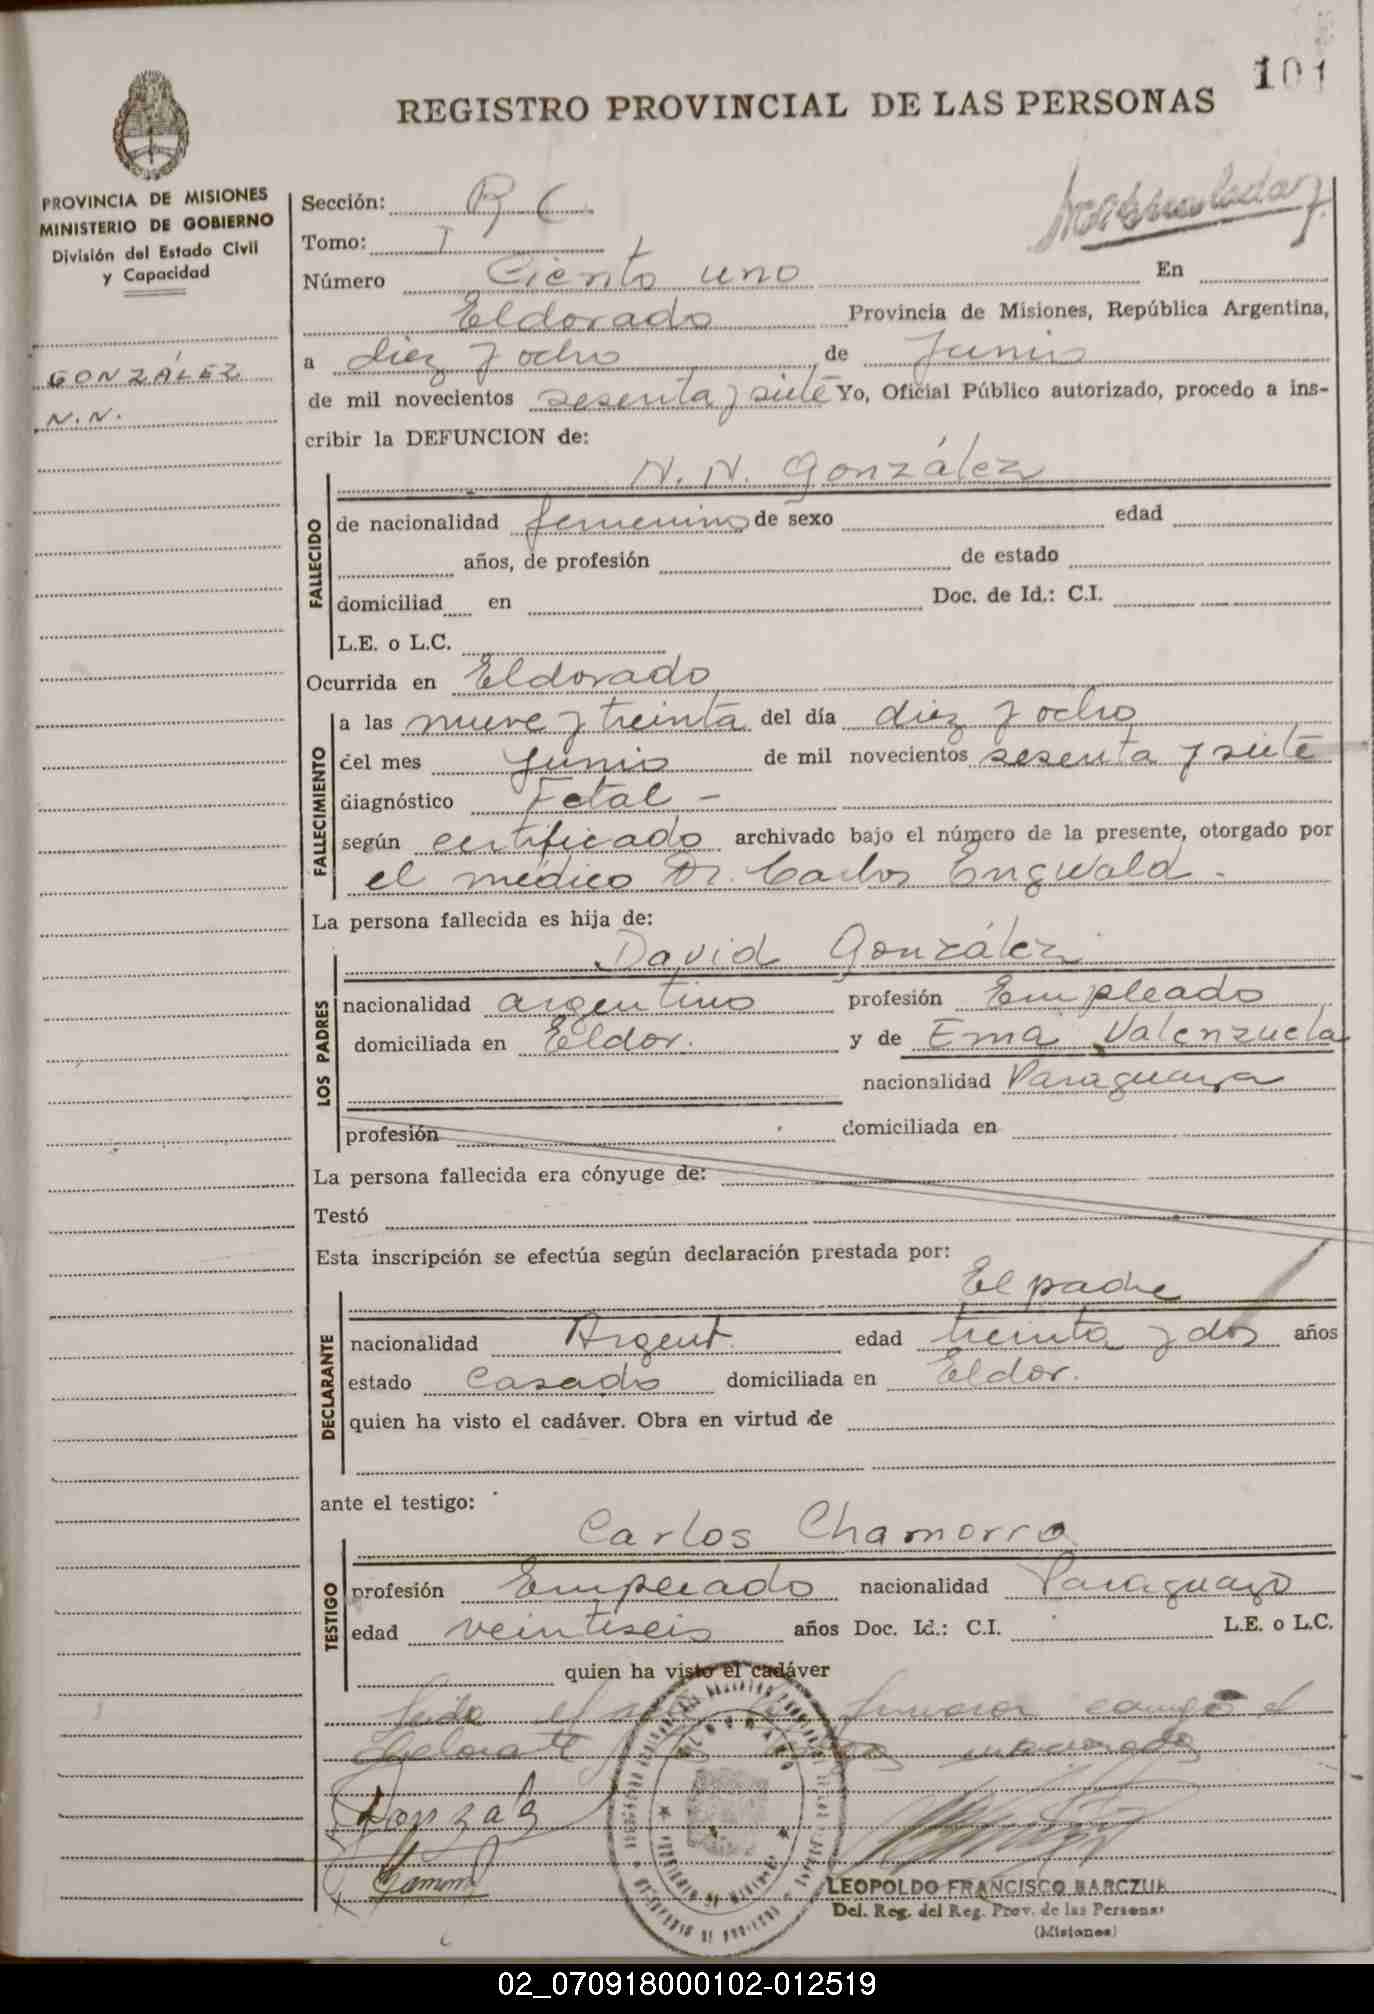 101
REGISTRO PROVINCIAL DE LAS PERSONAS
PROVINCIA DE MISIONES
MINISTERIO DE GOBIERNO
División del Estado Civil
y Capacidad
GONZÁLEZ
N.N.
Sección:
Tomo: I
Número Ciento uno En
Eldorado Provincia de Misiones, República Argentina,
a diez y ocho de Junio
de mil novecientos sesenta y siete Yo, Oficial Público autorizado, procedo a ins-
cribir la DEFUNCION de:
N. N. González
FALLECIDO
de nacionalidad femenino de sexo edad
años, de profesión de estado
domiciliad en Doc. de Id.: C.I.
L.E. o L.C.
Ocurrida en Eldorado
FALLECIMIENTO
a las nueve y treinta del día diez y ocho
del mes Junio de mil novecientos sesenta y siete
diagnóstico Fetal -
según certificado archivado bajo el número de la presente, otorgado por
el médico Dr. Carlos Engwald -
La persona fallecida es hija de:
David González
LOS PADRES
nacionalidad argentino profesión Empleado
domiciliada en Eldor. y de Ema Valenzuela
nacionalidad Paraguaya
profesión domiciliada en
La persona fallecida era cónyuge de:
Testó
Esta inscripción se efectúa según declaración prestada por:
El padre
DECLARANTE
nacionalidad Argent. edad treinta y dos años
estado Casado domiciliada en Eldor.
quien ha visto el cadáver. Obra en virtud de
ante el testigo:
Carlos Chamorro
TESTIGO
profesión Empleado nacionalidad Paraguayo
edad veintiseis años Doc. Id.: C.I. L.E. o L.C.
quien ha visto el cadáver
Leida el conmigo el
LEOPOLDO FRANCISCO BARCZUK
Del. Reg. del Reg. Prov. de las Personas
(Misiones)
02_070918000102-012519